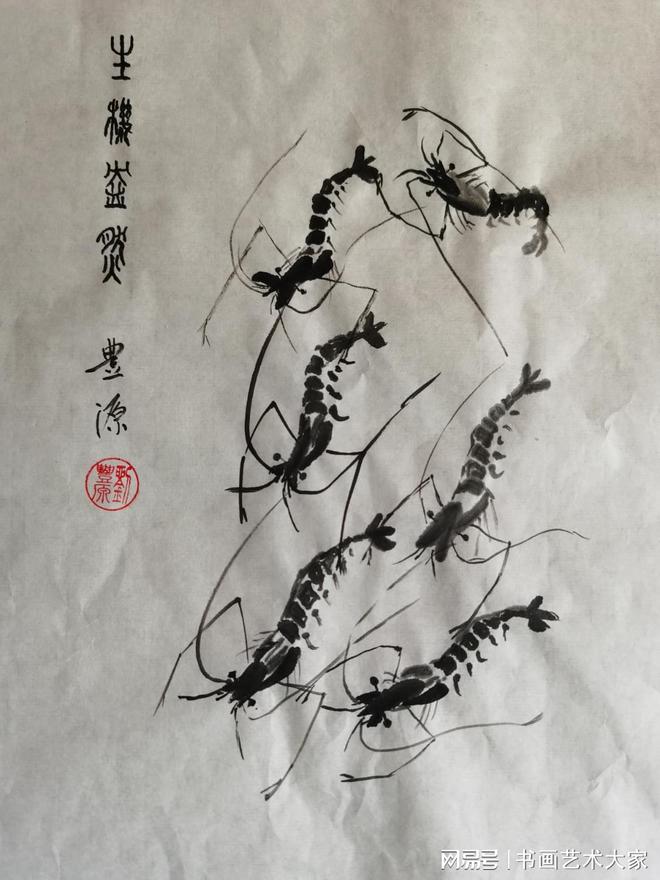 生機盎然
豊源
劉豊源
网易号 | 书画艺术大家